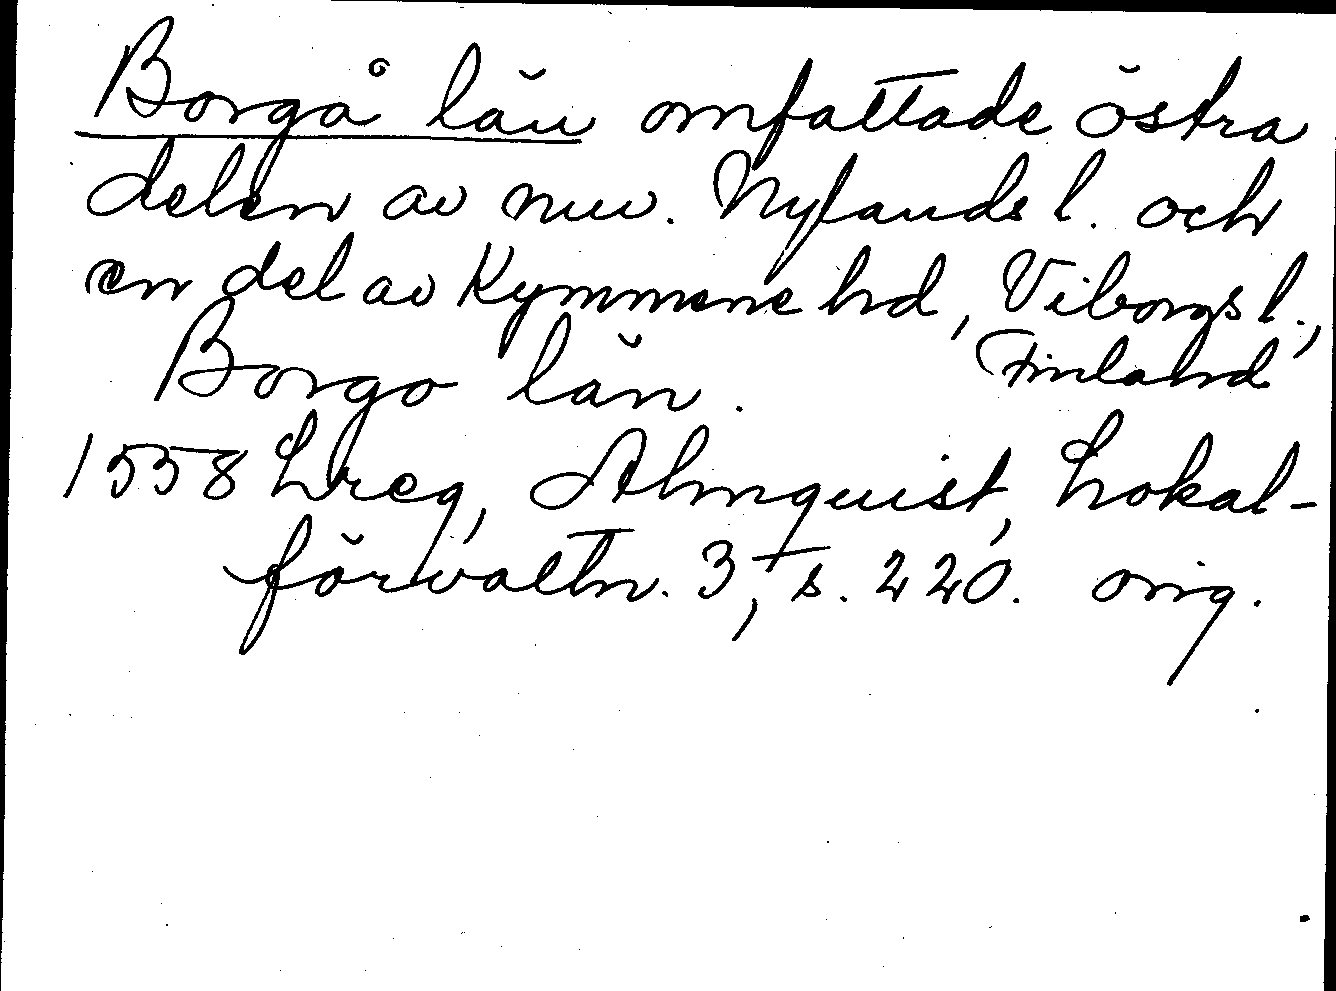 Borgå län omfattade östra
delen av nuv. Nylands l. och
en del av Kymmene hd, Viborgs l.,
Finland
Borgo län.
1558 Lreg, Almquist, Lokal-
förvaltn. 3, s. 220. orig.